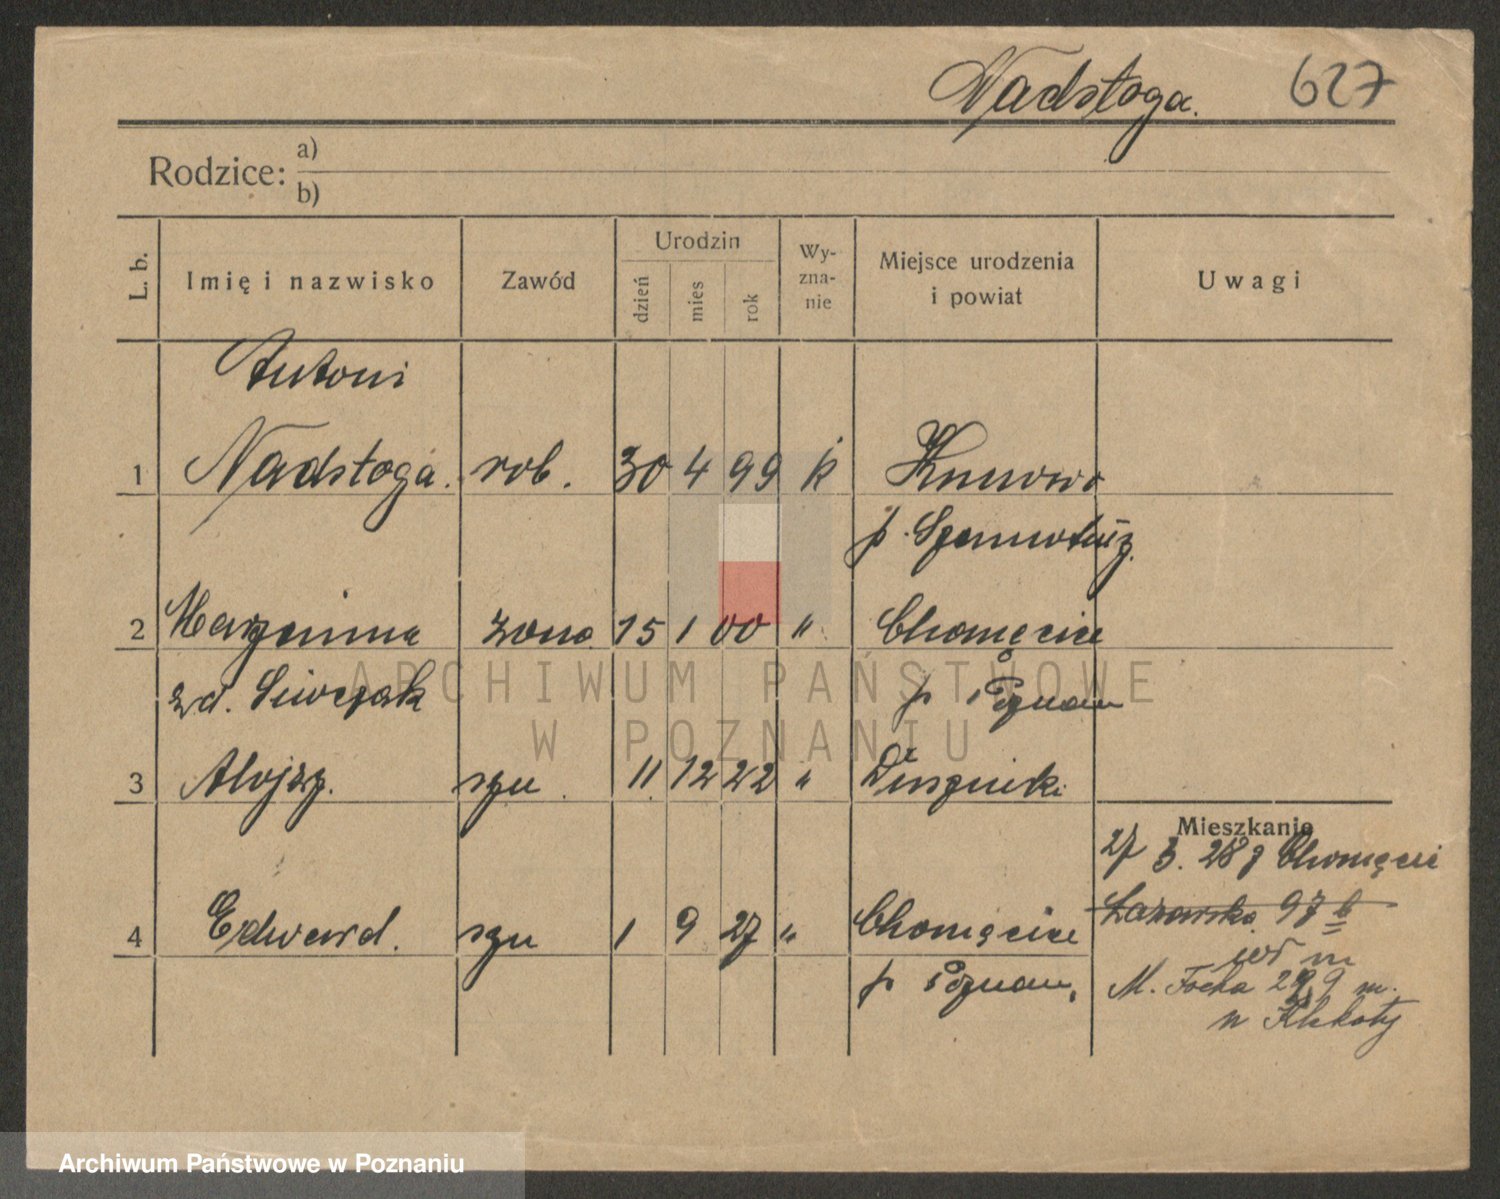 Nadstoga. 627
Rodzice: a)
b)
L. b. Imię i nazwisko Zawód Urodzin dzień mies rok Wy-zna-nie Miejsce urodzenia i powiat Uwagi
Antoni
1 Nadstoga. rob. 30 4 99 k
p. Szamotuły
2 Marjanna żona 15 1 00 " Chomęcice
zd. Siwczak p Poznań
3 Alojzy. syn 11 12 22 "
Mieszkanie
27 3. 28 z Chomęcic
4 Edward. syn 1 9 27 " Chomęcice Łazarska 97 b
p Poznań, M. Focha 29
ARCHIWUM PAŃSTWOWE
W POZNANIU
Archiwum Państwowe w Poznaniu